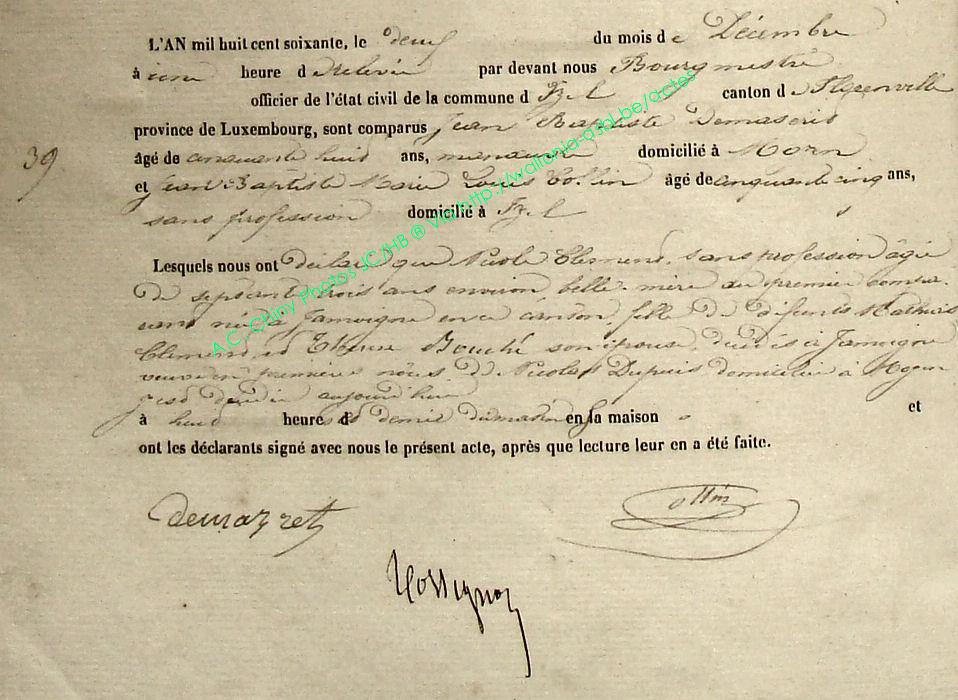 L'AN mil huit cent soixante, le deux du mois de Décembre
à une heure de relevée par devant nous Bourgmestre
officier de l'état civil de la commune d'Izel canton de Florenville
province de Luxembourg, sont comparus Jean Baptiste
39
âgé de cinquante huit ans, manœuvre domicilié à Moyen
et Jean Baptiste Marie Louis Collin âgé de cinquante cinq ans,
sans profession domicilié à Izel
Lesquels nous ont déclaré que Nicole Clemend, sans profession âgée
de septante trois ans environ, belle-mère du premier compa-
rant née à Jamoigne en ce canton, fille de défunts Mathias
Clemend et Bouché son épouse, décédés à Jamoigne
veuve en premières nôces de Nicolas Dupuis domiciliée à Moyen
est décédée aujourd'hui
à huit heures et demie du matin en sa maison et
ont les déclarants signé avec nous le présent acte, après que lecture leur en a été faite.
demazret
ollin
Rossignol
A.C. Chiny Photos JC/HB ® Via http://wallonia-asbl.be/actes